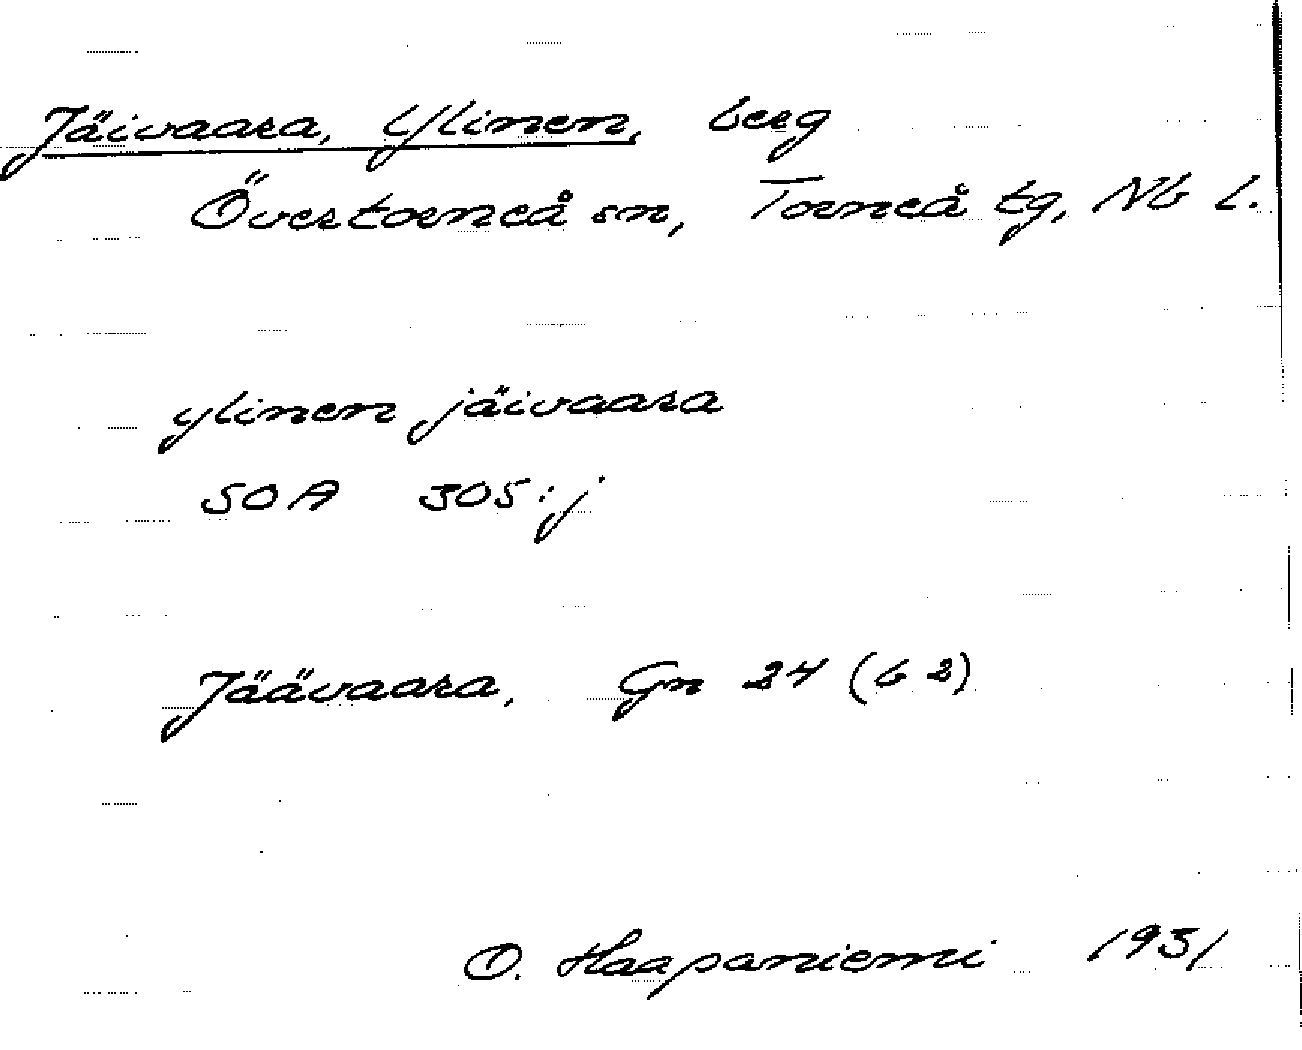 Jäivaara, Ylinen, berg
Övertorneå sn, Torneå tg, Nb l.
ylinen jäivaara
SOA 305:j
Jäävaara, Gn 24 (b 2)
O. Haapaniemi 1931